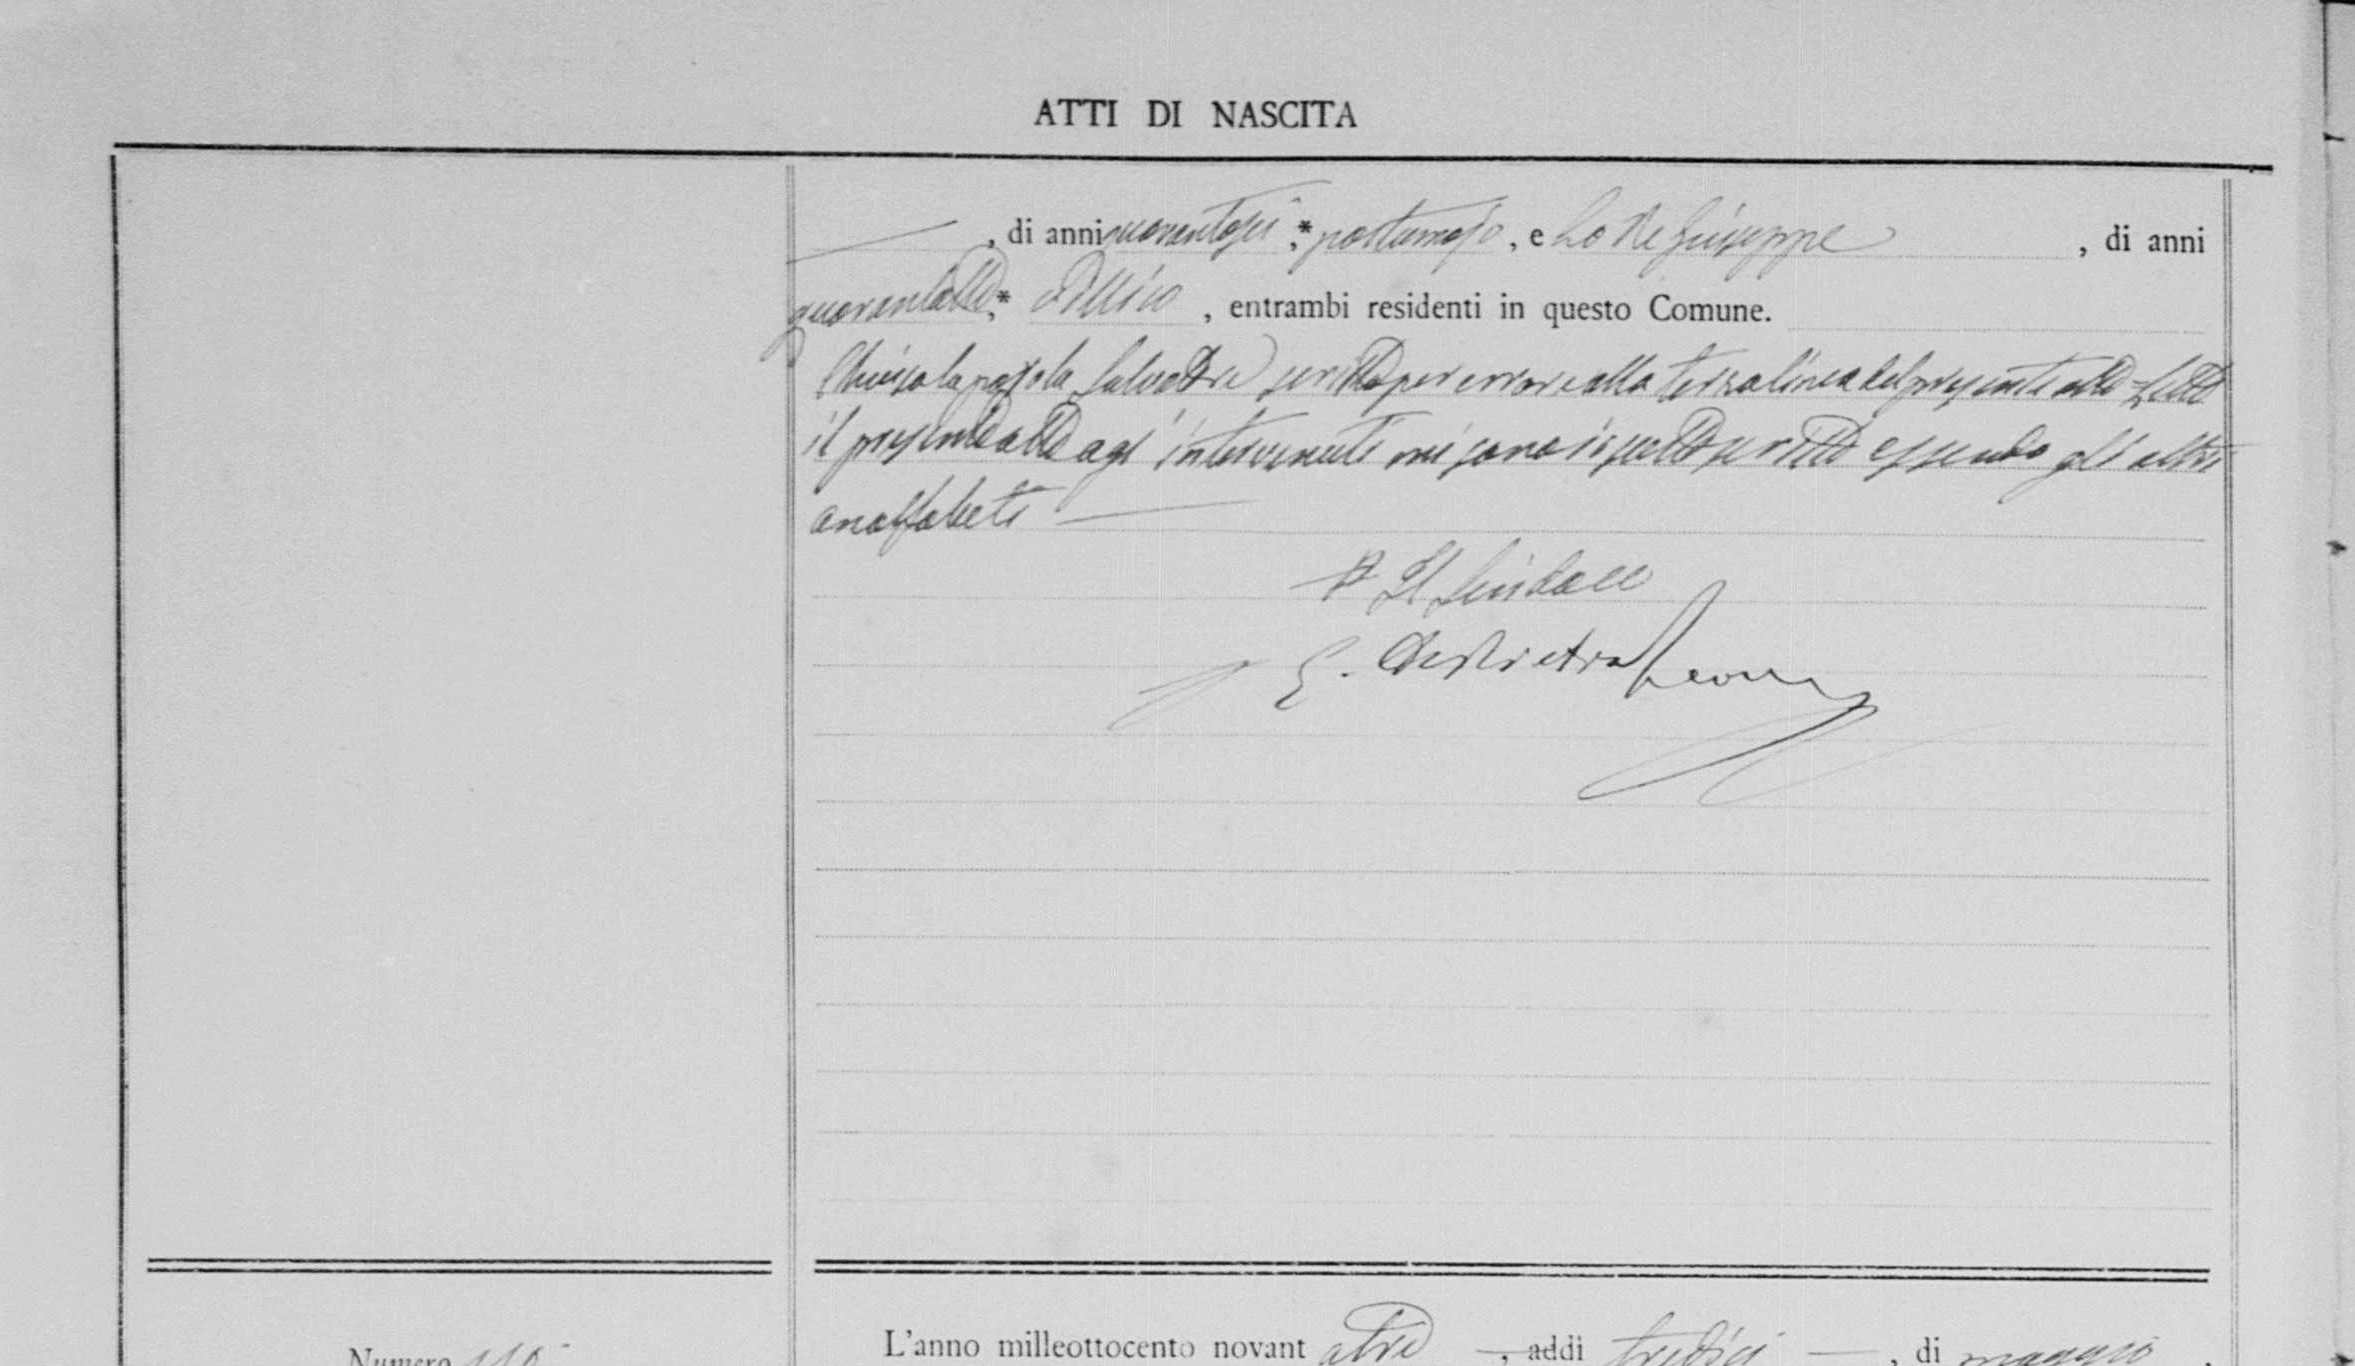 ATTI DI NASCITA
, di anni quarantasei, * , e Lo Re Giuseppe , di anni
quarantotto, * , entrambi residenti in questo Comune.
la parola Salvatore scritta per errore alla terza linea del presente atto = Letto
il presente atto agl' intervenuti mi sono io sottoscritto essendo gli altri
analfabeti
Il Sindaco
E.
Numero
L'anno milleottocento novant atre , addì tredici , di maggio ,